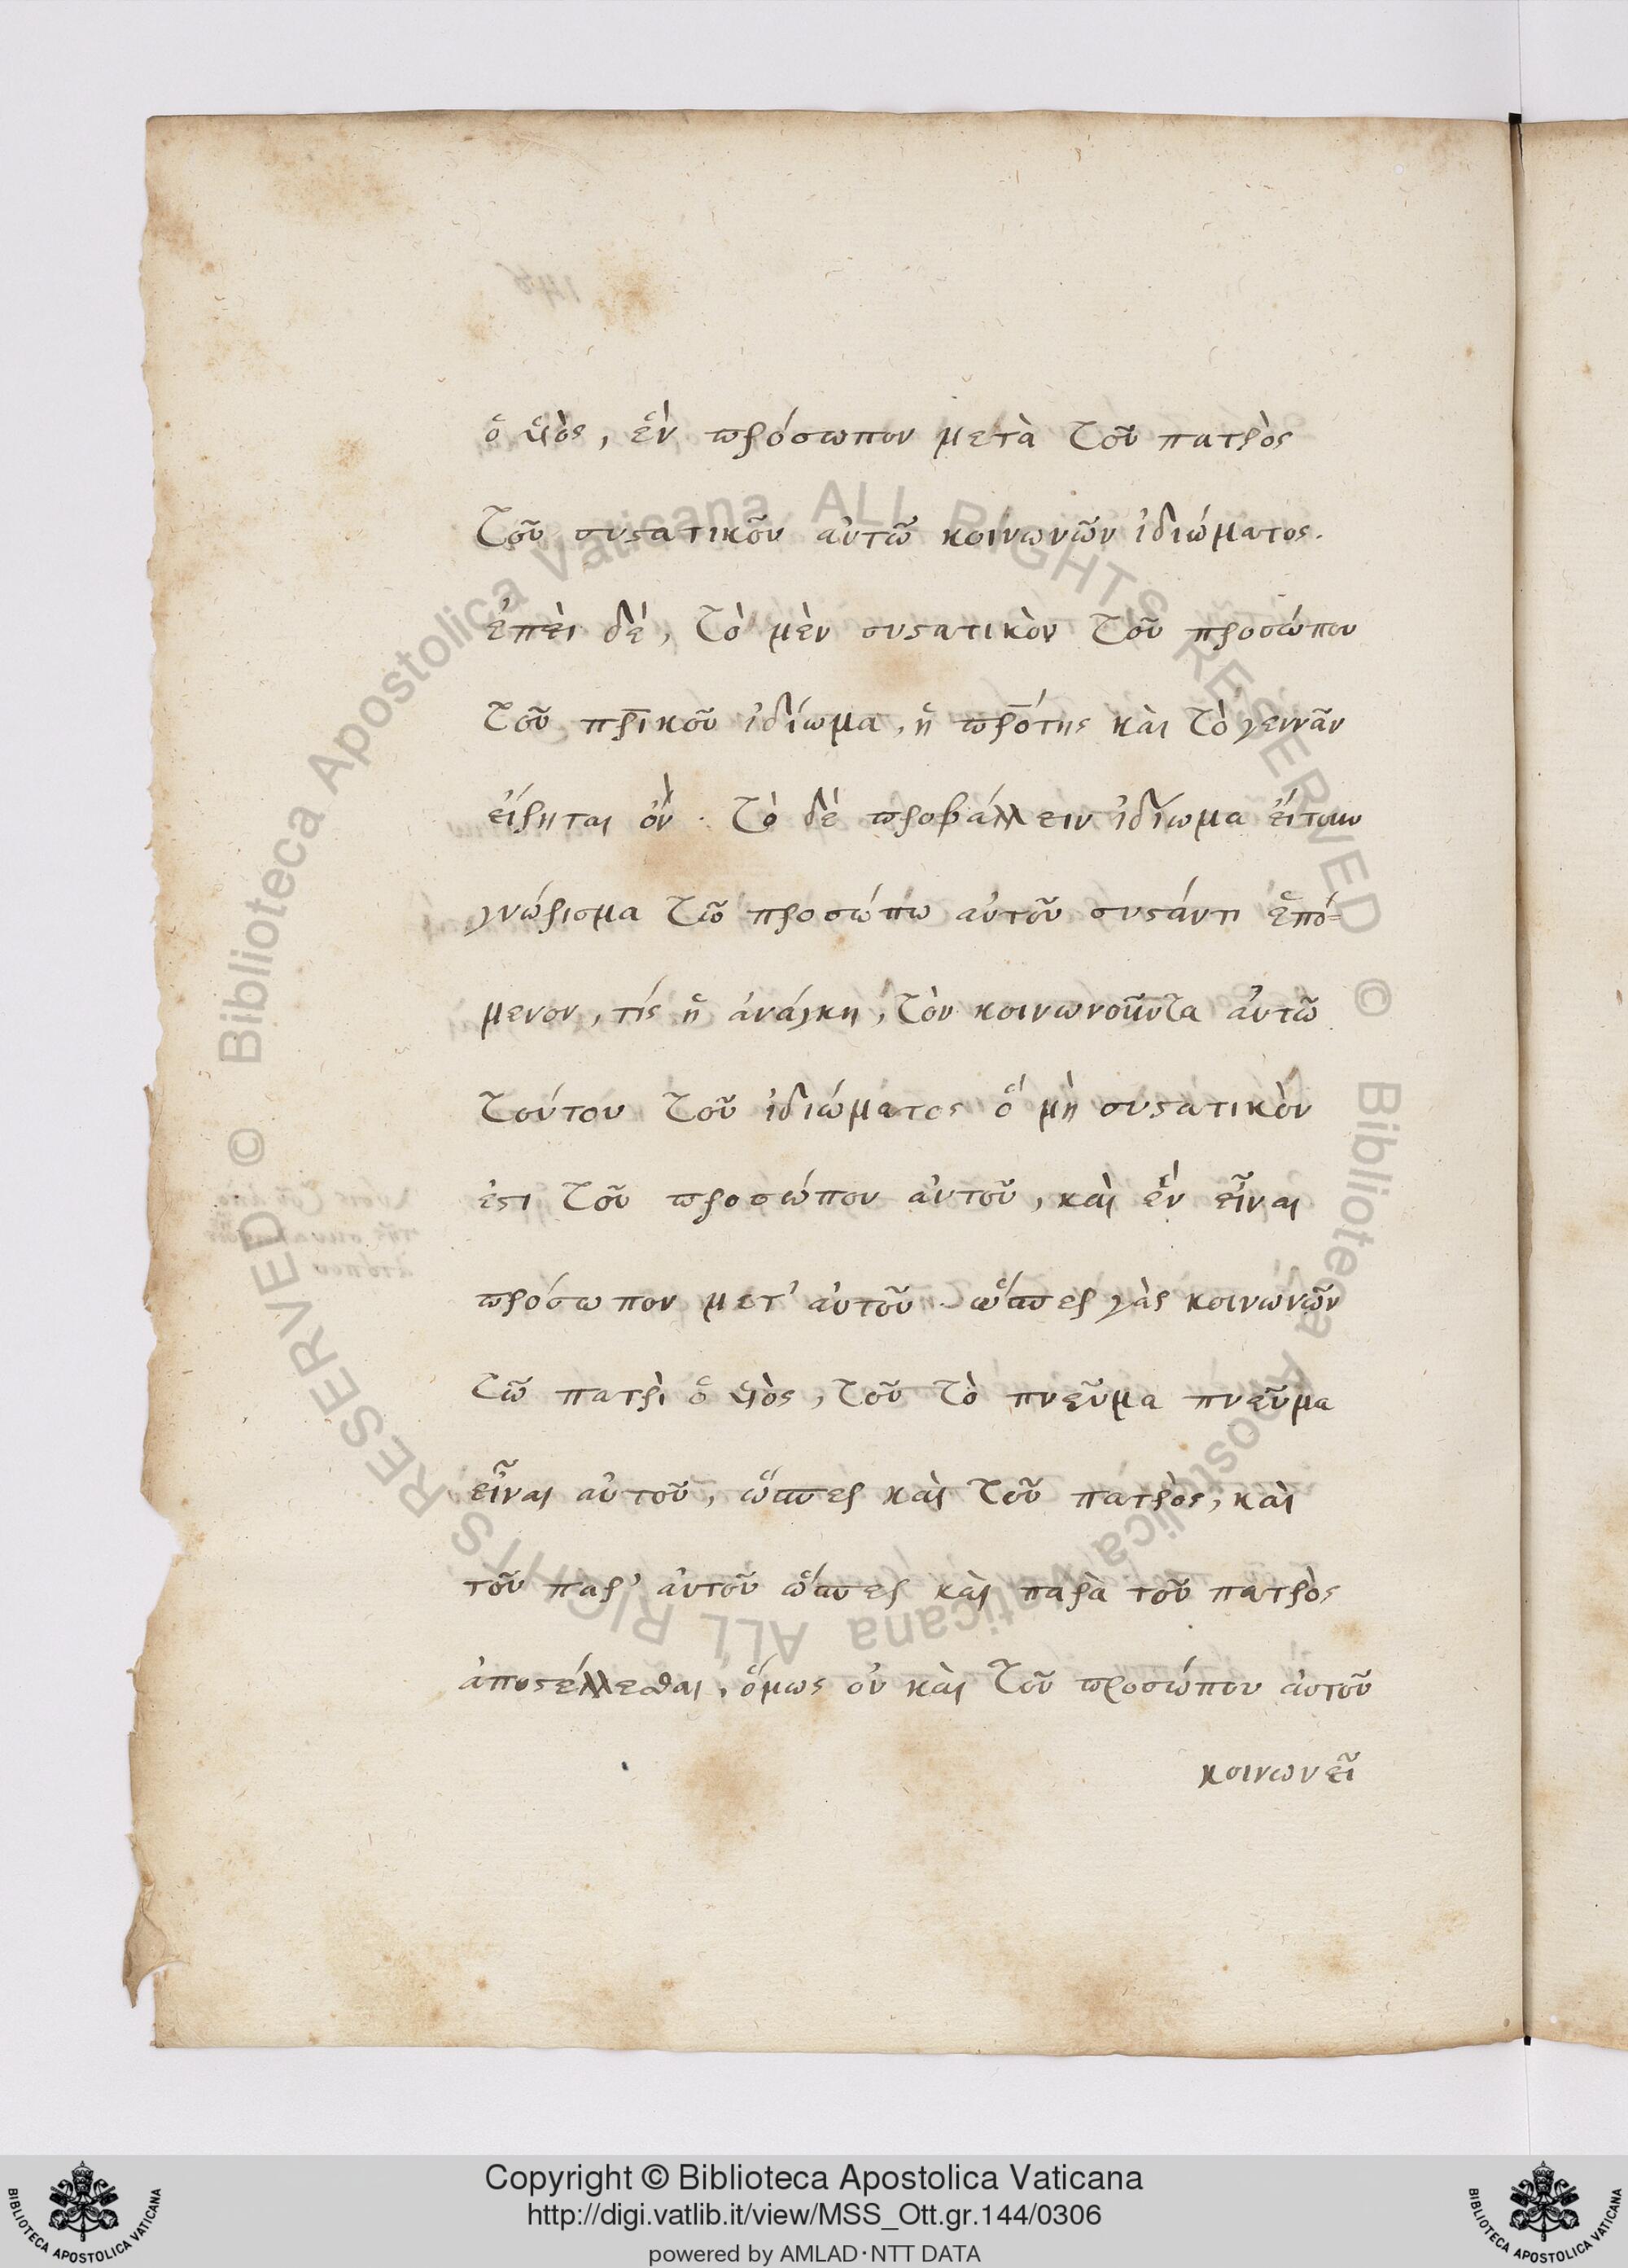 ὁ ὑιὸς, ἓν πρόσωπον μετὰ τοῦ πατρὸς
τοῦ συϛατικοῦ αὐτῶ κοινωνῶν ἰδιώματος.
ἐπεὶ δὲ, τὸ μὲν συϛατικὸν τοῦ προσώπου
τοῦ πρ̅ικοῦ ἰδίωμα, ἡ πρ̅ότης καὶ τὸ γεννᾶν
εἴρηται ὂν. τὸ δὲ προβάλλειν ἰδίωμα
γνώρισμα τῶ προσώπω αὐτοῦ συϛάντι ἑπό=
μενον, τίς ἡ ἀνάγκη, τὸν κοινωνοῦντα αὐτῶ
τούτου τοῦ ἰδιώματος ὃ μὴ συϛατικὸν
ἐϛι τοῦ προσώπου αὐτοῦ, καὶ ἓν εἶναι
πρόσωπον μετ' αὐτοῦ. ὥσπερ γὰρ κοινωνῶν
τῶ πατρὶ ὁ ὑιὸς, τοῦ τὸ πνεῦμα πνεῦμα
εἶναι αὐτοῦ, ὥσπερ καὶ τοῦ πατρὸς, καὶ
τοῦ παρ' αὐτοῦ ὥσπερ καὶ παρὰ τοῦ πατρὸς
ἀποϛέλλεσθαι, ὅμως οὐ καὶ τοῦ προσώπου αὐτοῦ
κοινωνεῖ
Biblioteca Apostolica Vaticana ALL RIGHTS RESERVED ©
Biblioteca Apostolica Vaticana ALL RIGHTS RESERVED ©
Copyright © Biblioteca Apostolica Vaticana
http://digi.vatlib.it/view/MSS_Ott.gr.144/0306
powered by AMLAD·NTT DATA
BIBLIOTECA APOSTOLICA VATICANA
BIBLIOTECA APOSTOLICA VATICANA